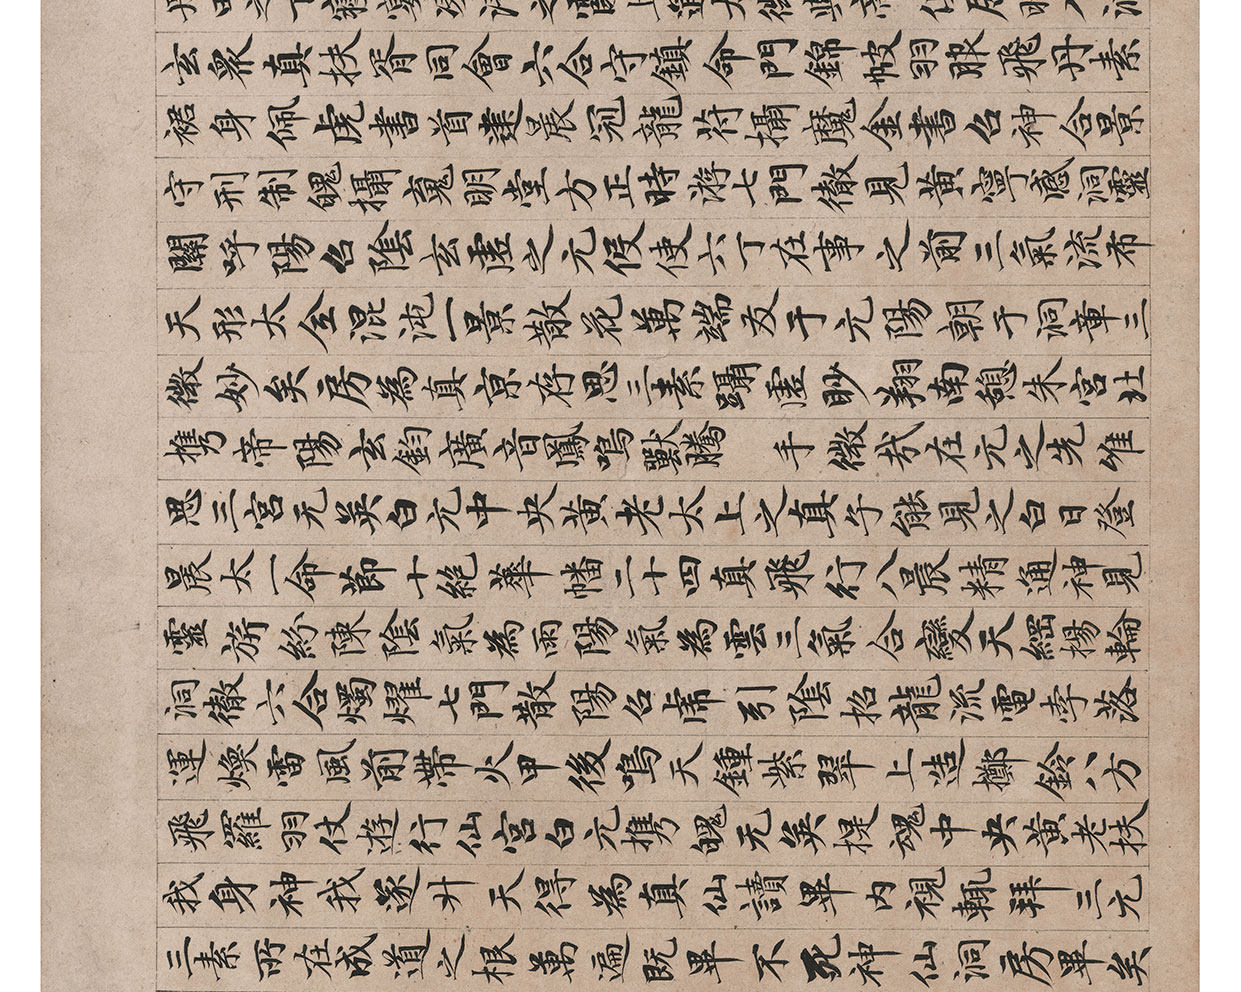 玄眾真扶胥同會六合守鎮命門錦帔羽服飛丹素
裙身佩虎書首建晨冠龍符攝魔金書召神合景
守形制魄攝嵬明堂方正時游七門徹見黃寧憑洞靈
關呼陽召陰玄虛之元役使六丁在事之前三氣流布
天形太全混沌一景散花萬端友于元陽朝于洞章三
微妙矣房為真京存思三素躡虛眇翔南憩朱宮北
携帝陽玄鈞廣音鳳鳴獸騰 手微哉在元之先唯
思三宮无英白元中央黃老太上之真子能見之白日登
晨太一命節十絕華幡二十四真飛行八晨精通神見
靈旂紛陳陰氣為雨陽氣為雲三氣合變天綱揚輪
洞徹六合燭耀七門散陽召虎引陰招龍流電李落
運煥雷風前帶火甲後鳴天鍾紫翠上造擲鈴八方
飛羅羽仗遊行仙宮白元携魄无英提魂中央黃老扶
我身神我遂升天得為真仙讀畢內視輒拜三元
三素所在成道之根萬遍既畢不死神仙洞房畢矣